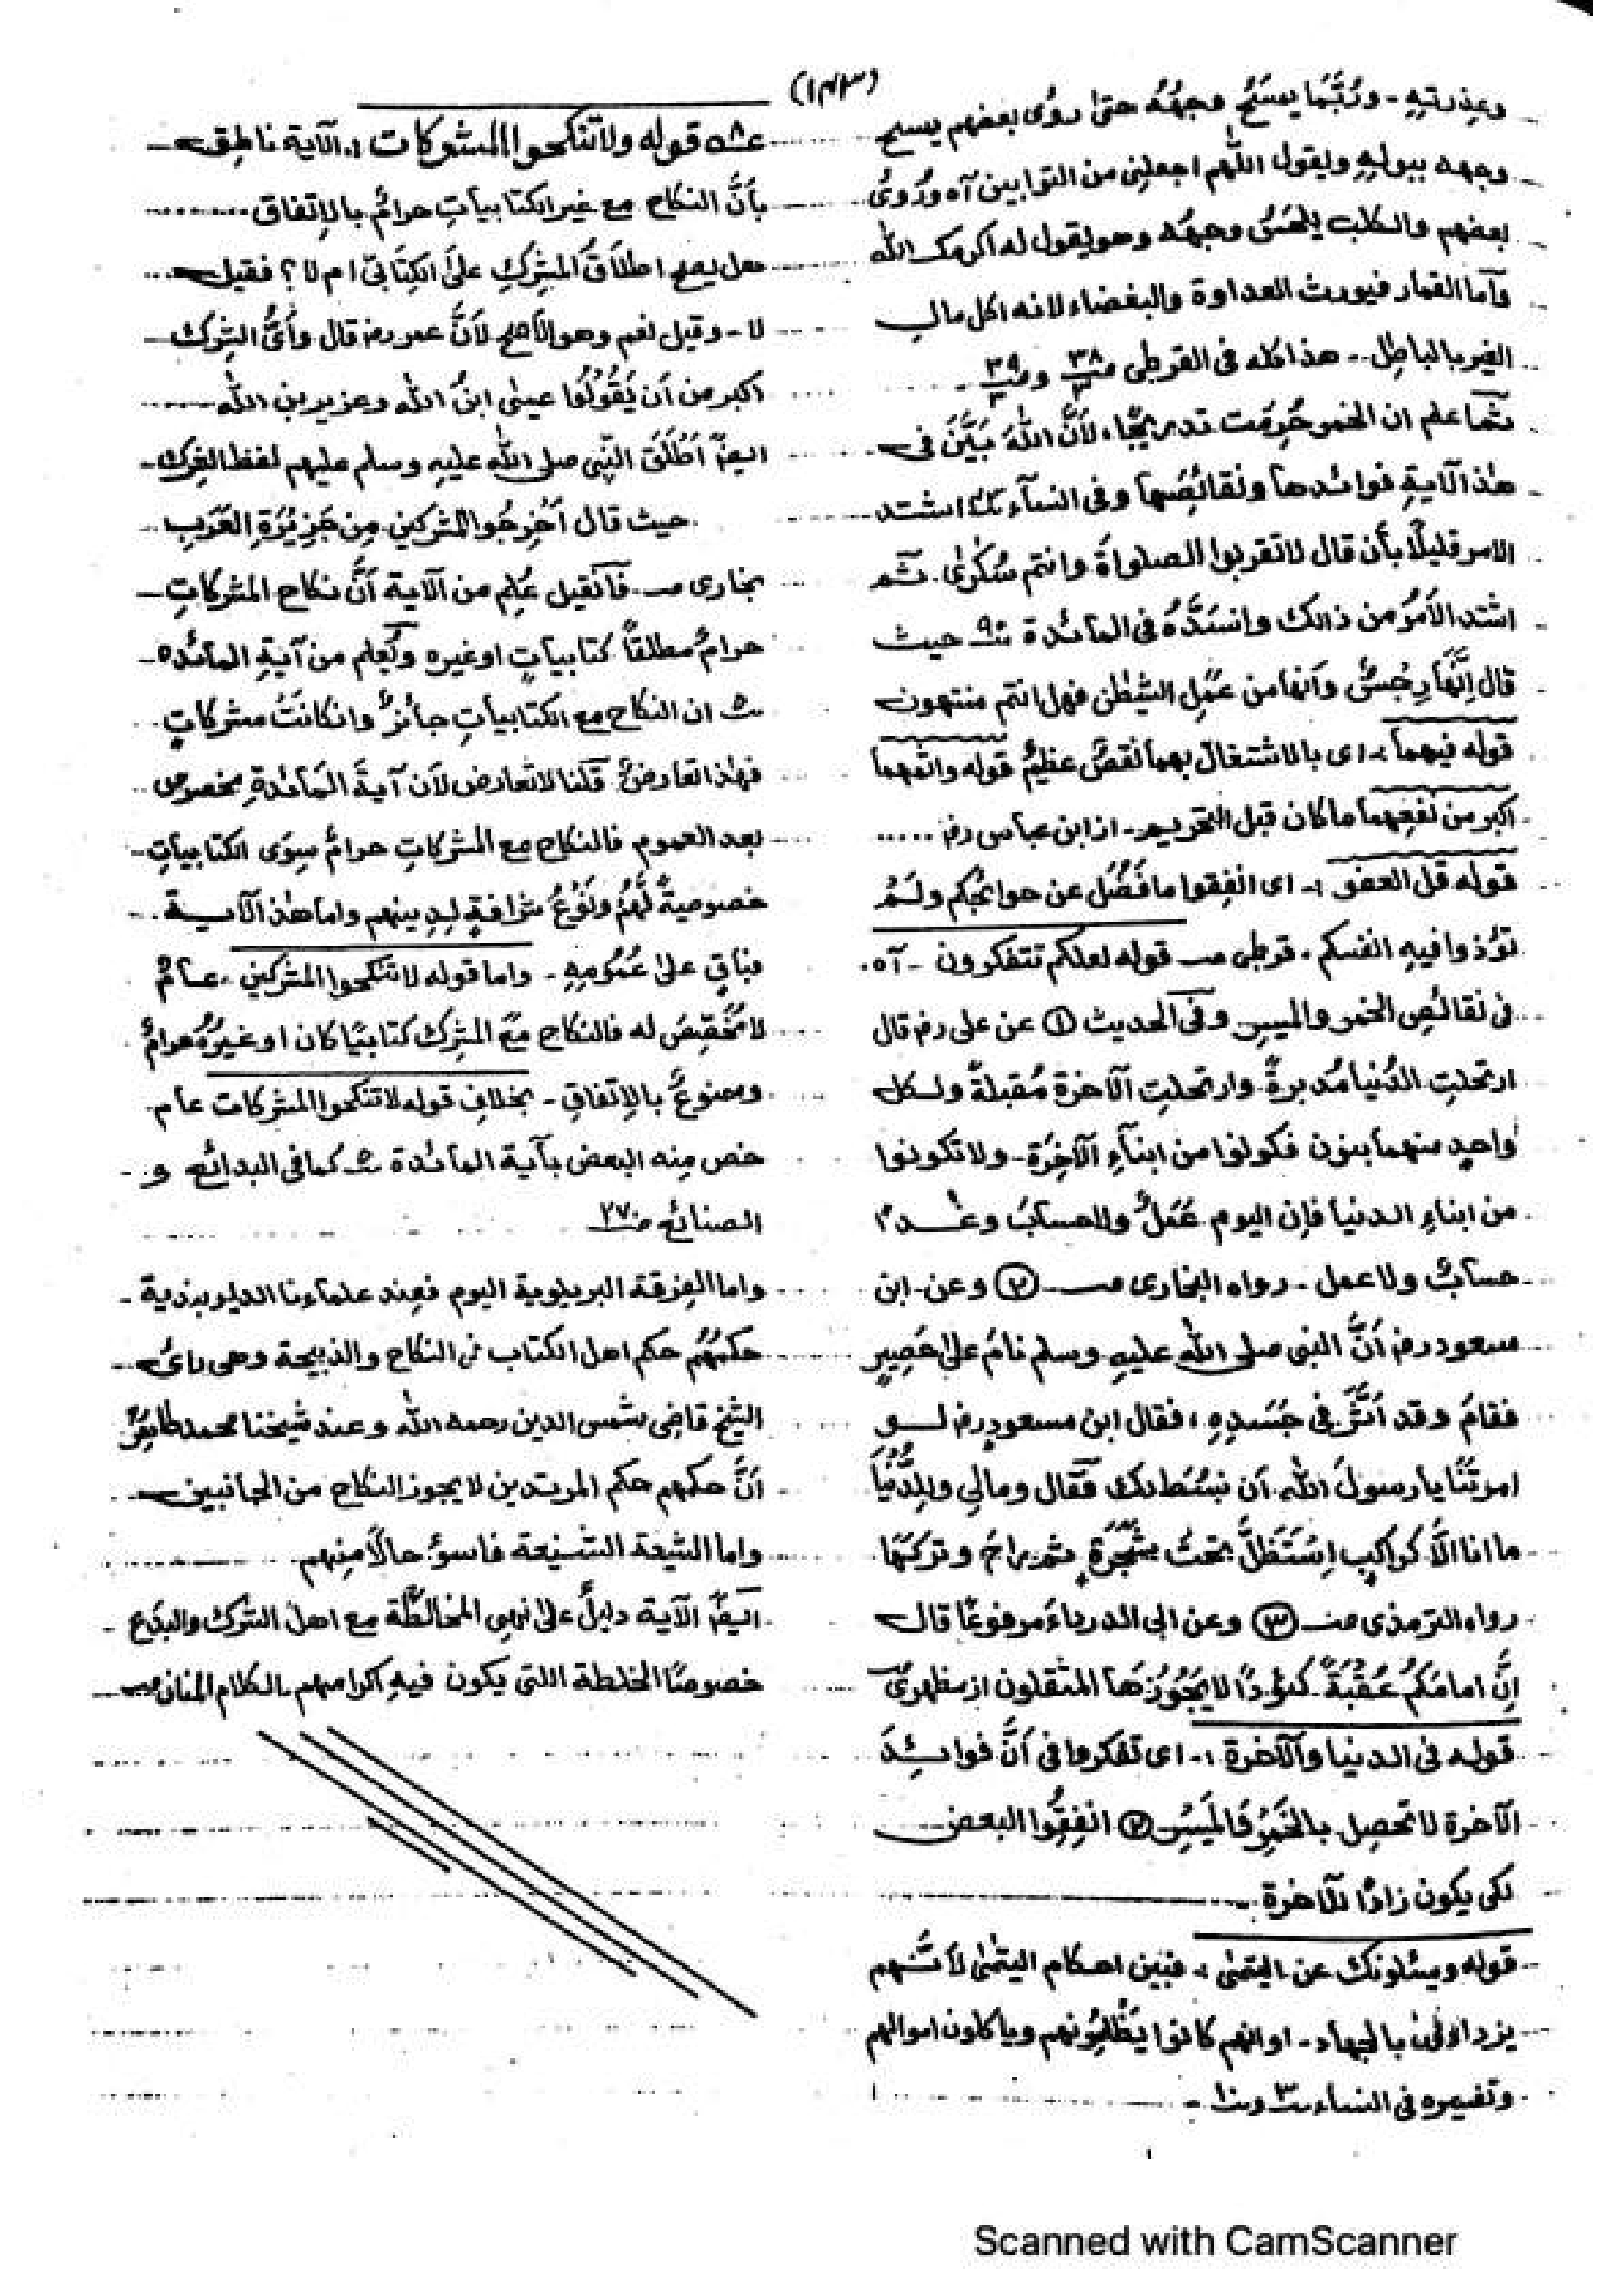 (١٤٣)
وعذرتهٖ - ورُبَّمَا يمسَحُ وجهَهُ حتىٰ رؤى بعضهم يمسح
وجهه ببولهٖ ويقول اللّٰهم اجعلنى من التوابين آه ورُوىَ
بعضهم والكلب يلحَسُ وجهَهُ وهو يقول له اكرمك اللّٰه
وآما القمار فيورث العداوة والبغضاء لانه اكل مال
الغير بالباطِل - هذا كله فى القرطبى ص٣٨/٣ و ص٣٩/٣
ثم اعلم ان الخمر حُرِمَت تدريجًا، لاَنَّ اللّٰهَ بَيَّنَ فى
هٰذ الآيةِ فوائدها ونقائصَها وفى النسآء اشتد
الامر قليلًا بأن قال لاتقربوا الصلواةَ وانتم سُكرٰى. ثم
اشتد الاَمرُ من ذالك وانسَدَّهُ فى المائدة ٩٠ حيث
قال اِنَّها رِجسٌ وآنها من عَمَلِ الشيطٰن فهل انتم منتهون
قوله فيهما :- اى بالاشتغال بهما نقصٌ عظيمٌ قوله واثمهما
اكبر من نفعهما ما كان قبل التحريم - از ابن عباس رض .....
قوله قل العفو :- اى انفِقوا ما فَضَلَ عن حوائجكم ولَمْ
تؤذوا فيهِ انفسكم . قرطبى ص قوله لعلكم تتفكرون - آه.
فى نقائصِ الخمر والميسر وفى الحديث ① عن على رض قال
ارتحلتِ الدُنيا مُدبرةً وارتحلتِ الآخرة مُقبلةً ولكل
واحدٍ منهما بنون فكونوا من ابنآءِ الآخِرَة - ولاتكونوا
من ابناءِ الدنيا فإن اليوم عَمَلٌ ولاحسابَ وغدًا
حسابٌ ولاعمل - رواه البخارى ص ② وعن ابن
مسعود رض أنَّ النبى صلى اللّٰه عليهِ وسلم نامَ علىٰ حَصِيرٍ
فقامَ وقد اَثَّرَ فى جَسَدِهٖ ، فقال ابن مسعودٍ رض لو
امرتَنَا يا رسولَ اللّٰه أن نبسُطَ لك فقال ومالى وللدُّنْيَا
ما انا اِلَّا كراكبٍ اِسْتَظَلَّ تحتَ شَجَرَةٍ ثم راحَ وتركَهَا
رواه الترمذى ص ③ وعن ابى الدرداءَ مرفوعًا قال
اِنَّ امامَكُم عَقَبَةً كؤدًا لايَجُوزُهَا المثقلون از مظهرى
قوله فى الدنيا والآخرة :- اى تفكروا فى اَنَّ فوائدَ
الآخرة لاتحصل بالخَمرِ والمَيسِرِ ② انفِقُوا البعض
لكى يكون زادًا للآخرة
قوله ويسئلونك عن اليتمٰى :- فبين احكام اليتمٰى لاَنَّهم
يزدادون بالجهاد - او انهم كانوا يَظْلِمُونهم وياكلون اموالهم
وتفسيره فى النساء ٣ و ١٠ -
قوله ولاتنكحوا المشركات :. الآية ناطِق
بأنَّ النكاح مع غير الكتابياتِ حرامٌ بالإتفاق
هل يصح اطلاَقُ المشركِ علَى الكِتَابىّ ام لا؟ فقيل
لا - وقيل نعم وهو الاَصح لاَنَّ عمر رض قال وأىُّ الشرك
اكبر من أن يَقُولُوا عيسٰى ابنُ اللّٰه وعزير بن اللّٰه
ايضًا اَطْلَقَ النّبى صلى اللّٰه عليهِ وسلم عليهم لفظ الشرك
حيث قال اَخْرِجُوا المشركين مِن جَزِيْرَةِ العَرَبِ
بخارى ص - فآنقيل عُلِم من الآية أنَّ نكاح المشركاتِ
حرامٌ مطلقاً كتابياتٍ اوغيره ويُعلم من آيةِ المائده
٥ ان النكاح مع الكتابياتِ جائزٌ وان كانَتْ مشركاتٍ
فهٰذ التعارضُ قلنا لاتعارض لأن آيةَ المَائدةِ مخصوص
بعد العموم فالنكاح مع المشركاتِ حرامٌ سِوَى الكتابيات
خصوصيةً لَهُم ونَوْعُ شرافةٍ لِدِينهم واما هٰذ الآية
فباقٍ علىٰ عُمُومِهٖ - واما قوله لاتنكحوا المشركين :عامٌ
لامُخَصِّصَ له فالنكاح مع المشرِك كتابيًا كان اوغيرُهُ حرامٌ
وممنوعٌ بالإتفاقِ - بخلافِ قوله لاتنكحوا المشركات عام
خص مِنه البعض بآية المائدة ٥ كما فى البدائع و
الصنائع ص٢٧٠
واما الفِرقة البريلوية اليوم فعند علماءنا الديوبندية
حكمُهُم حكم اهل الكتاب فى النكاح والذبيحة وهى راىُ
الشيخ قاضى شمس الدين رحمه اللّٰه وعند شيخنا محمد طاهرؒ
أنَّ حكمهم حكم المرتدين لايجوز النكاح من الجانبين
واما الشيعة الشنيعة فاسوءُ حالًا مِنهم
ايضًا الآية دليلٌ علىٰ نهىِ المخالطَة مع اهل الشرك والبدَع
خصوصًا الخلطة اللتى يكون فيهِ اكرامهم